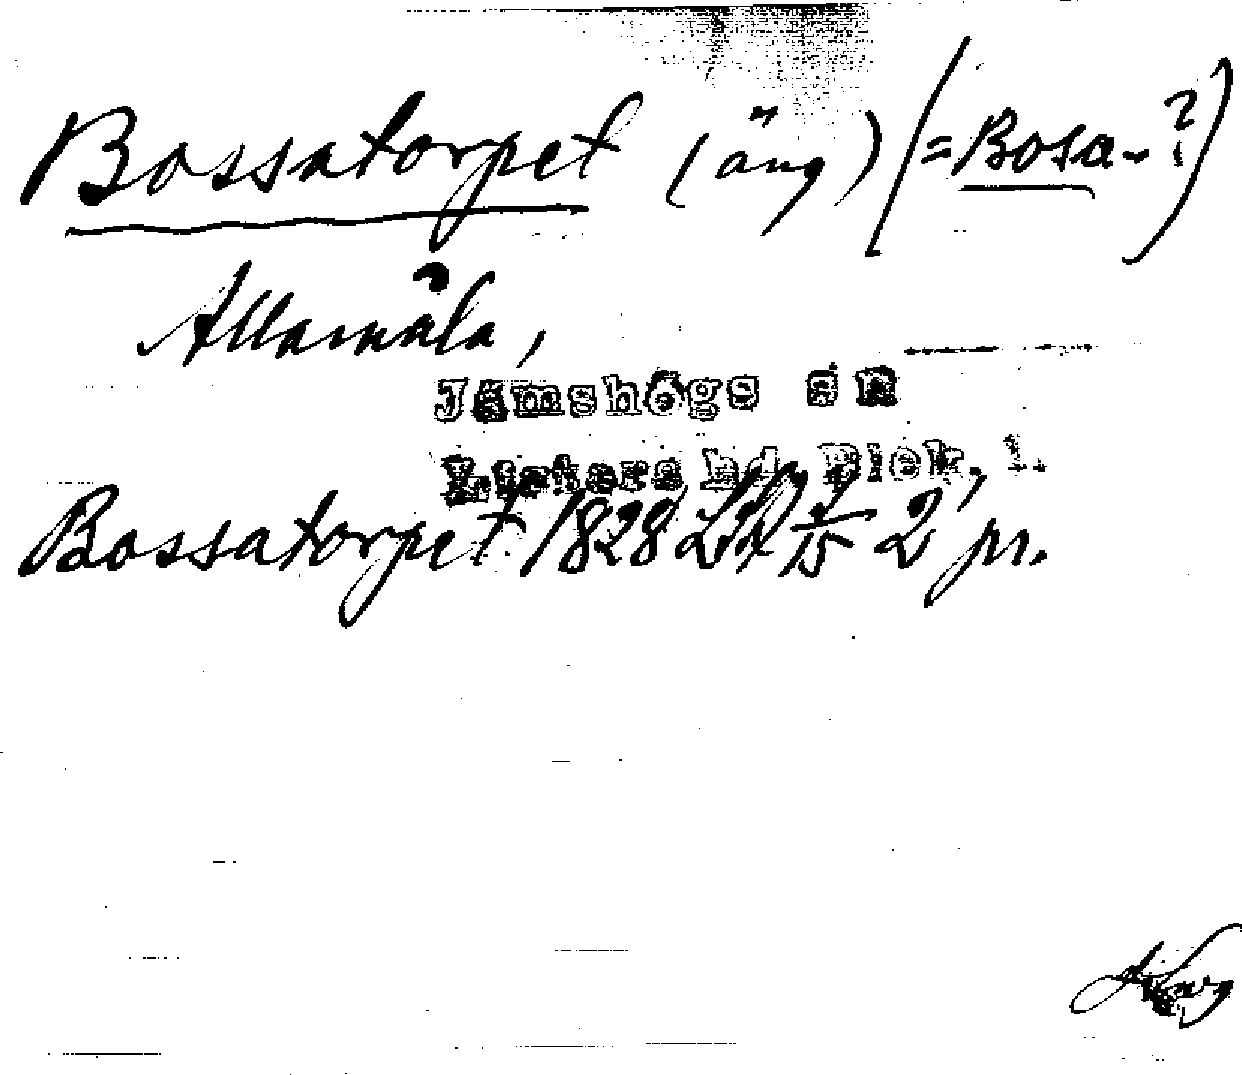 Bossatorpet (äng) (= Bosa- ?)
Allamåla,
Jämshögs sn
Listers hd, Blek. l.
Bossatorpet 1828 2/15 2 pr.